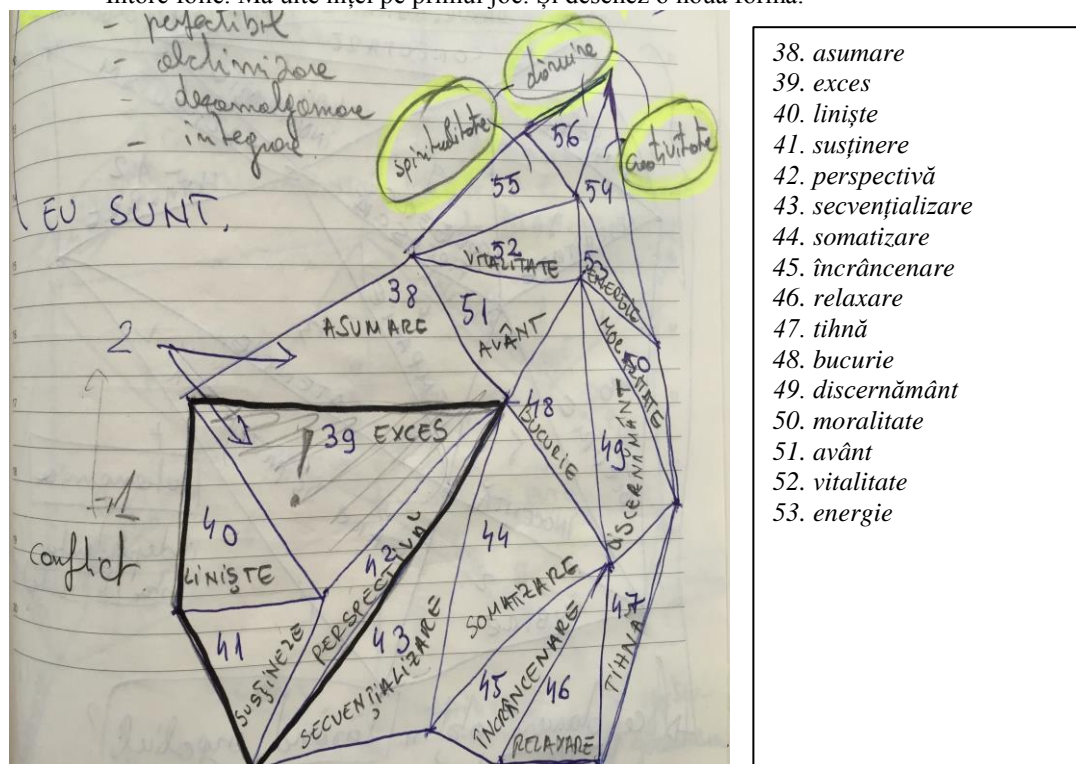 Întore foile. Mă uite nițel pe primul joc. Și desenez o nouă formă.
- perfectibil
- alchimizare
- dezamalgamare
- integral
dăruire
spiritualitate
creativitate
EU SUNT,
56
55
54
52
VITALITATE
53
ENERGIE
38
ASUMARE
51
AVÂNT
MORALITATE
50
2
48
BUCURIE
39 EXCES
!
49
DISCERNĂMÂNT
-1
conflict
40
LINIȘTE
42
PERSPECTIVA
44
SOMATIZARE
41
SUSȚINERE
43
SECVENȚIALIZARE
45
ÎNCRÂNCENARE
46
RELAXARE
47
TIHNĂ
38. asumare
39. exces
40. liniște
41. susținere
42. perspectivă
43. secvențializare
44. somatizare
45. încrâncenare
46. relaxare
47. tihnă
48. bucurie
49. discernământ
50. moralitate
51. avânt
52. vitalitate
53. energie